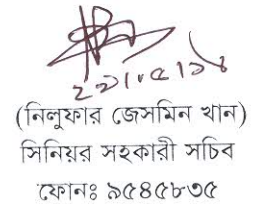 (নিলুফার জেসমিন খান)
সিনিয়র সহকারী সচিব
ফোনঃ ৯৫৪৫৮৩৫